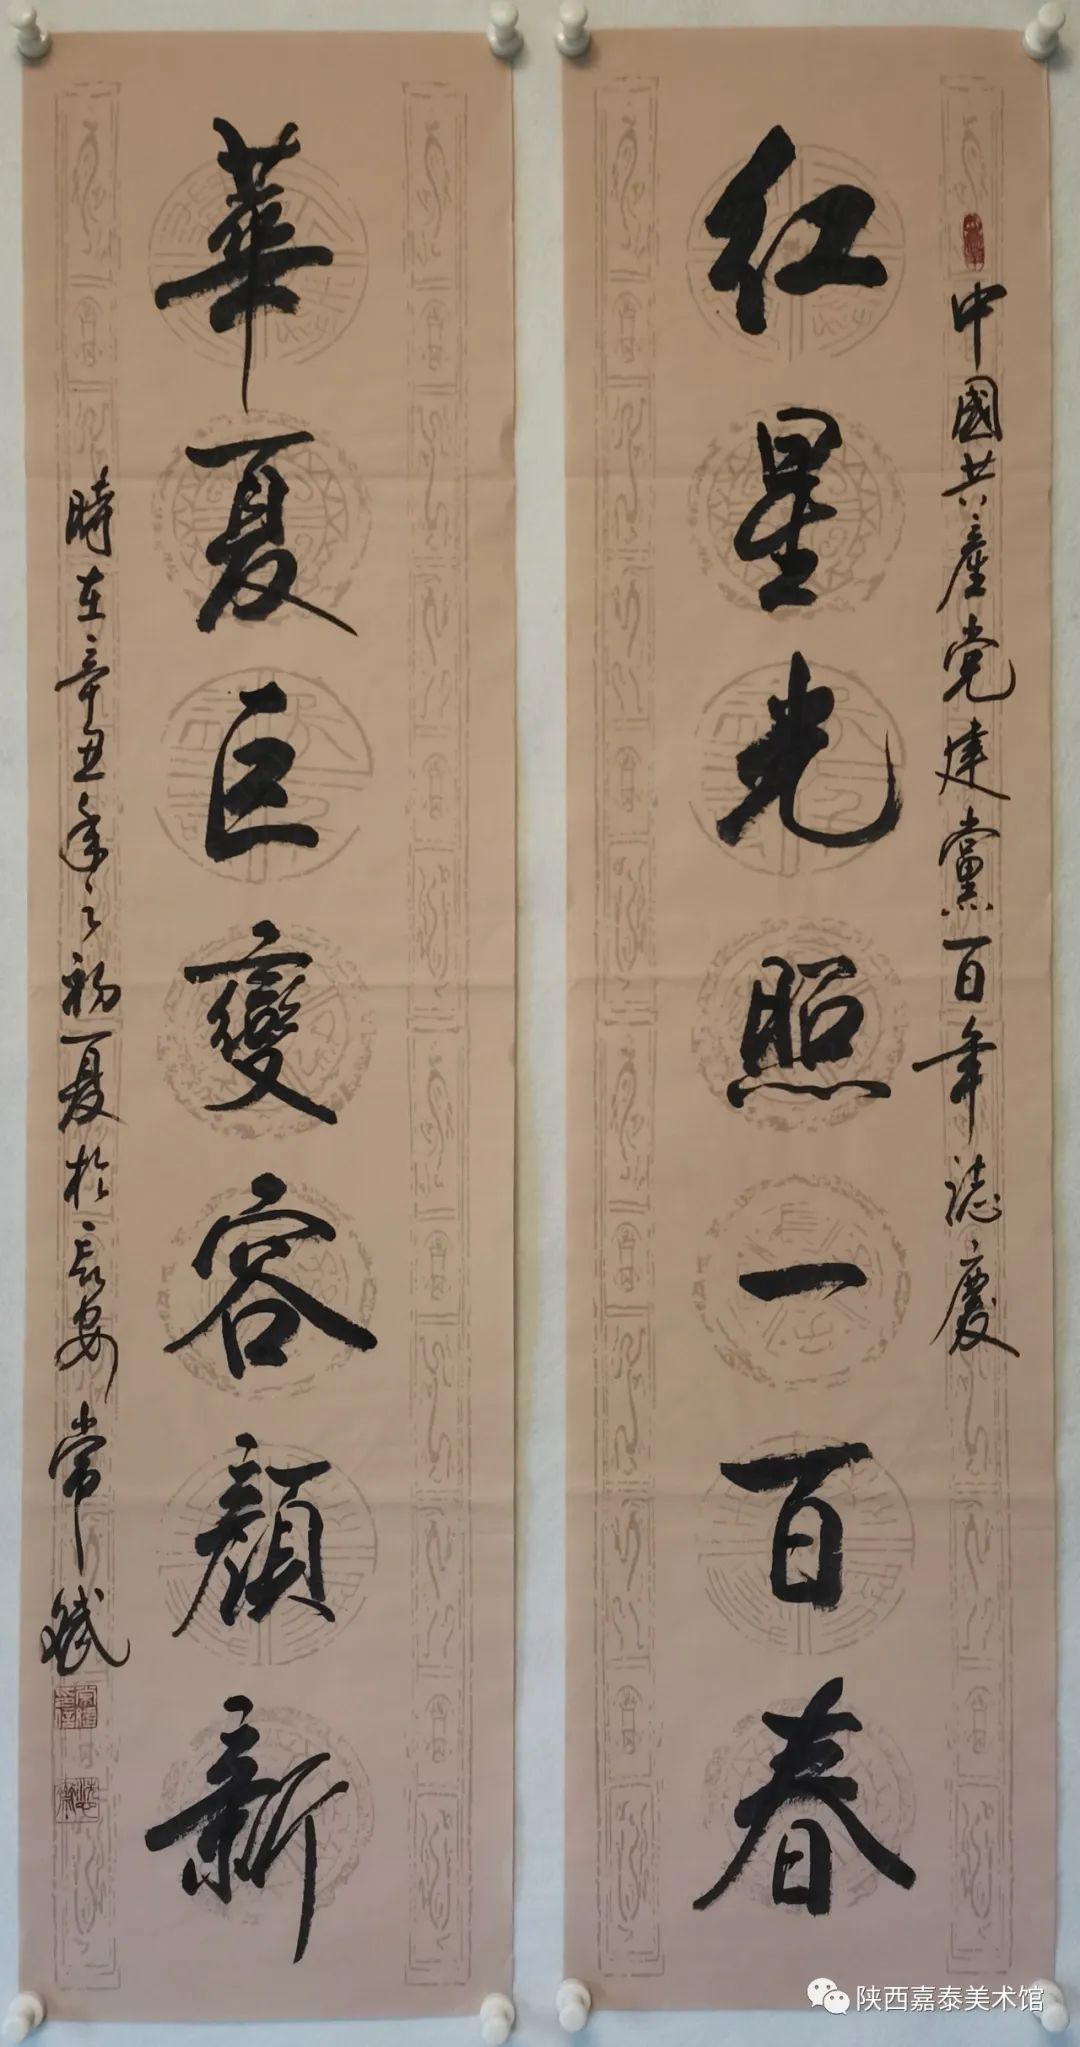 中國共產党建黨百年誌慶
红星光照一百春
華夏巨變容顏新
時在辛丑年之初夏於長安常斌
陕西嘉泰美术馆